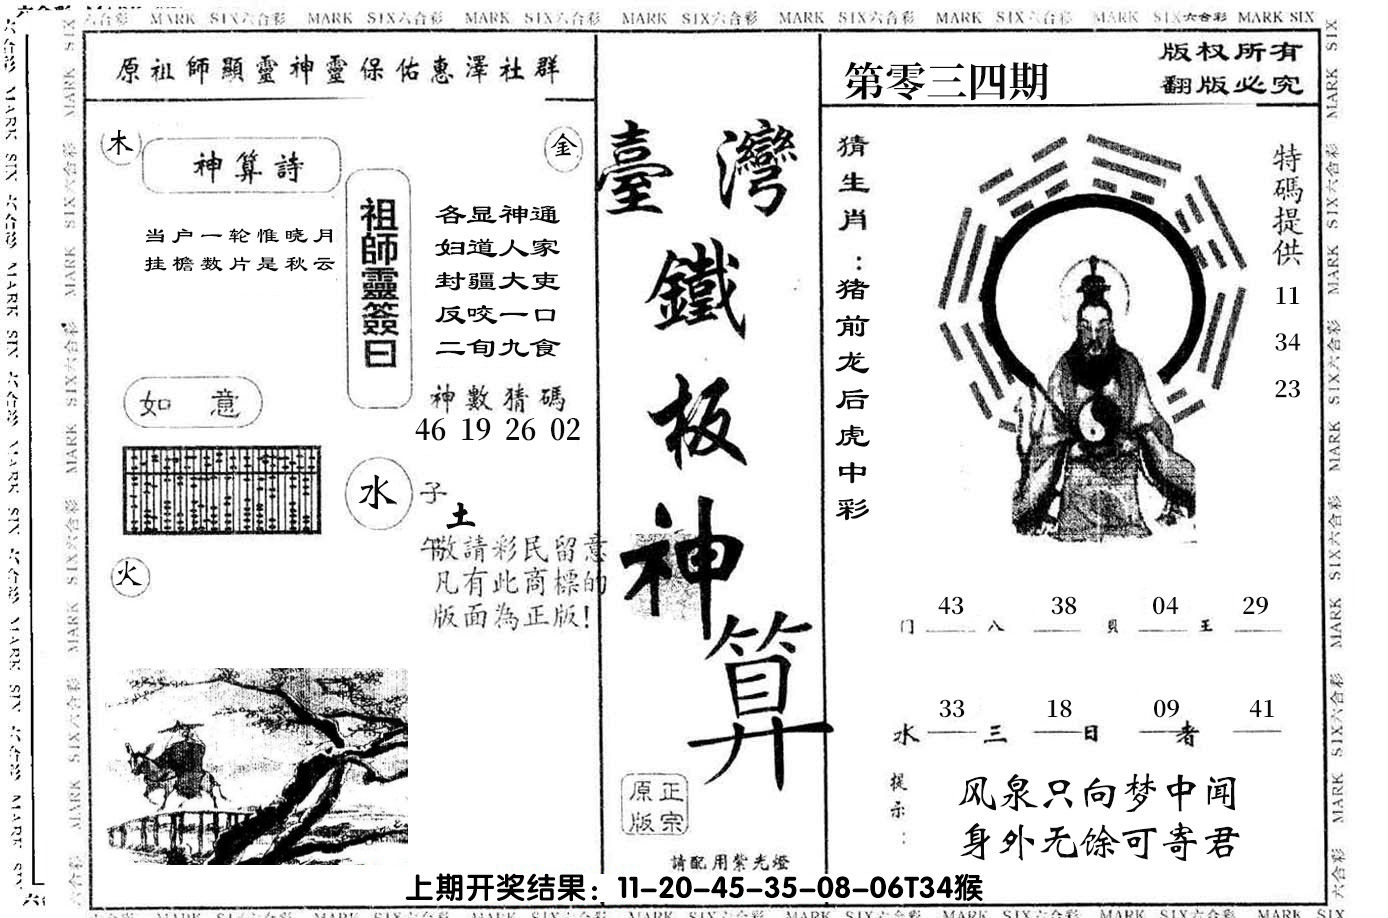 六合彩 MARK SIX六合彩 MARK SIX六合彩 MARK SIX六合彩 MARK SIX六合彩 MARK SIX六合彩 MARK SIX六合彩 MARK SIX六合彩 MARK SIX
原祖師顯靈神靈保佑惠澤社群
木
神算詩
金
当户一轮惟晓月
挂檐数片是秋云
祖師靈簽曰
各显神通
妇道人家
封疆大吏
反咬一口
二旬九食
神數猜碼
46 19 26 02
如 意
水
子
土
午
火
敬請彩民留意
凡有此商標的
版面為正版!
臺灣
鐵
板
神
算
正宗
原版
請配用紫光燈
第零三四期
版权所有
翻版必究
猜生肖:猪前龙后虎中彩
特碼提供
11
34
23
43 38 04 29
门 八 貝 王
33 18 09 41
水 三 日 者
提示:
风泉只向梦中闻
身外无馀可寄君
上期开奖结果：11-20-45-35-08-06T34猴